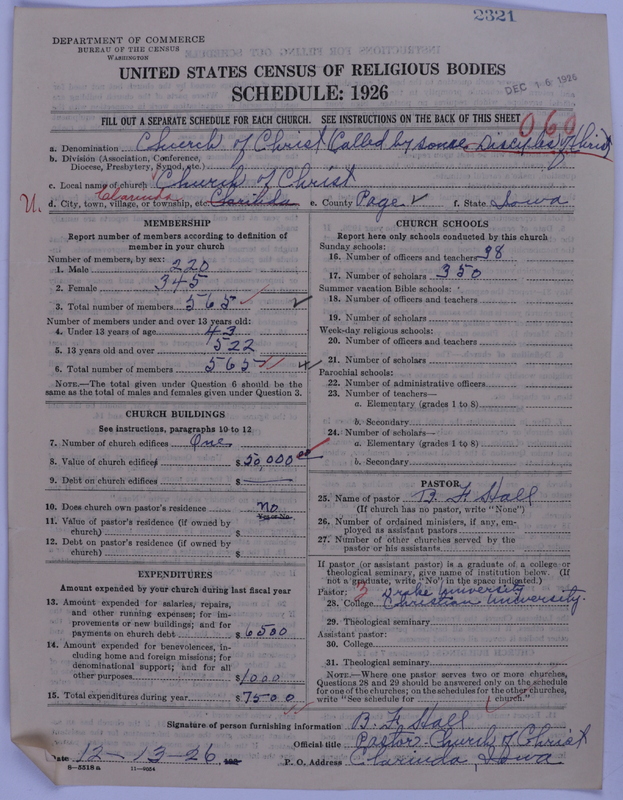 2321
DEPARTMENT OF COMMERCE
BUREAU OF THE CENSUS
WASHINGTON
DEC 16 1926
UNITED STATES CENSUS OF RELIGIOUS BODIES
SCHEDULE: 1926
FILL OUT A SEPARATE SCHEDULE FOR EACH CHURCH. SEE INSTRUCTIONS ON THE BACK OF THIS SHEET
060
a. Denomination Church of Christ Called by some Disciples of Christ
b. Division (Association, Conference,
Diocese, Presbytery, Synod, etc.)
c. Local name of church Church of Christ
Clarinda
U. d. City, town, village, or township, etc. Clarinda e. County Page f. State Iowa
MEMBERSHIP
Report number of members according to definition of
member in your church
Number of members, by sex:
1. Male 220
2. Female 345
3. Total number of members 565
Number of members under and over 13 years old:
4. Under 13 years of age 43
5. 13 years old and over 522
6. Total number of members 565
NOTE.—The total given under Question 6 should be the
same as the total of males and females given under Question 3.
CHURCH BUILDINGS
See instructions, paragraphs 10 to 12
7. Number of church edifices One
8. Value of church edifices $ 50,000 00
9. Debt on church edifices $
10. Does church own pastor's residence No
Yes or No
11. Value of pastor's residence (if owned by
church) $
12. Debt on pastor's residence (if owned by
church) $
EXPENDITURES
Amount expended by your church during last fiscal year
13. Amount expended for salaries, repairs,
and other running expenses; for im-
provements or new buildings; and for
payments on church debt $ 6500
14. Amount expended for benevolences, in-
cluding home and foreign missions; for
denominational support; and for all
other purposes $ 1000
15. Total expenditures during year $ 7500
CHURCH SCHOOLS
Report here only schools conducted by this church
Sunday schools:
16. Number of officers and teachers 38
17. Number of scholars 350
Summer vacation Bible schools:
18. Number of officers and teachers
19. Number of scholars
Week-day religious schools:
20. Number of officers and teachers
21. Number of scholars
Parochial schools:
22. Number of administrative officers
23. Number of teachers—
a. Elementary (grades 1 to 8)
b. Secondary
24. Number of scholars—
a. Elementary (grades 1 to 8)
b. Secondary
PASTOR
25. Name of pastor B. F. Hall
(If church has no pastor, write "None")
26. Number of ordained ministers, if any, em-
ployed as assistant pastors
27. Number of other churches served by the
pastor or his assistants
If pastor (or assistant pastor) is a graduate of a college or
theological seminary, give name of institution below. (If
not a graduate, write "No" in the space indicated.)
Pastor: 3 Drake University
28. College Christian University.
29. Theological seminary
Assistant pastor:
30. College
31. Theological seminary
NOTE.—Where one pastor serves two or more churches,
Questions 28 and 29 should be answered only on the schedule
for one of the churches; on the schedules for the other churches,
write "See schedule for church."
Signature of person furnishing information B. F. Hall
Official title Pastor Church of Christ
Date 12-13-26, 192 P. O. Address Clarinda, Iowa
8—5518 a 11—9024